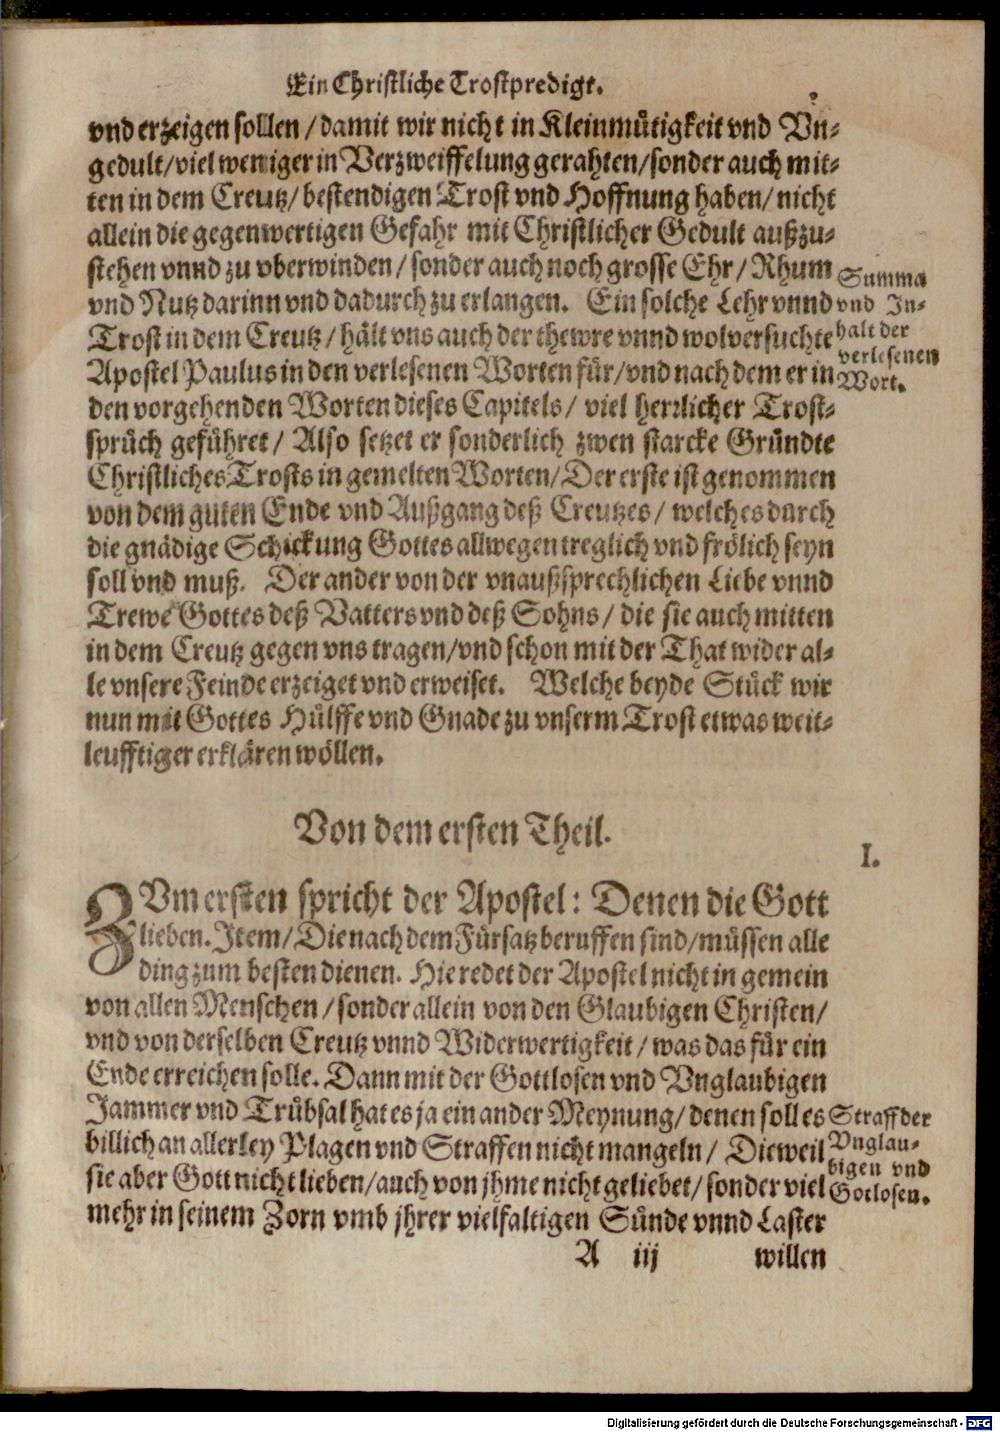 Ein Christliche Trostpredigt.
vnd erzeigen sollen / damit wir nicht in Kleinmütigkeit vnd Vn-
gedult / viel weniger in Verzweiffelung gerahten / sonder auch mit-
ten in dem Creutz / bestendigen Trost vnd Hoffnung haben / nicht
allein die gegenwertigen Gefahr mit Christlicher Gedult außzu-
stehen vnnd zu vberwinden / sonder auch noch grosse Ehr / Rhum
vnd Nutz darinn vnd dadurch zu erlangen. Ein solche Lehr vnnd
Trost in dem Creutz / hält vns auch der thewre vnnd wolversuchte
Apostel Paulus in den verlesenen Worten für / vnd nach dem er in
den vorgehenden Worten dieses Capitels / viel herrlicher Trost-
sprüch geführet / Also setzet er sonderlich zwen starcke Gründte
Christliches Trosts in gemelten Worten / Der erste ist genommen
von dem guten Ende vnd Außgang deß Creutzes / welches durch
die gnädige Schickung Gottes allwegen treglich vnd frölich seyn
soll vnd muß. Der ander von der vnaußsprechlichen Liebe vnnd
Trewe Gottes deß Vatters vnd deß Sohns / die sie auch mitten
in dem Creutz gegen vns tragen / vnd schon mit der That wider al-
le vnsere Feinde erzeiget vnd erweiset. Welche beyde Stück wir
nun mit Gottes Hülffe vnd Gnade zu vnserm Trost etwas weit-
leufftiger erklären wöllen.
Summa
vnd In-
halt der
verlesenen
Wort.
Von dem ersten Theil.
I.
ZVm ersten spricht der Apostel: Denen die Gott
lieben. Item / Die nach dem Fürsatz beruffen sind / müssen alle
ding zum besten dienen. Hie redet der Apostel nicht in gemein
von allen Menschen / sonder allein von den Glaubigen Christen /
vnd von derselben Creutz vnnd Widerwertigkeit / was das für ein
Ende erreichen solle. Dann mit der Gottlosen vnd Vnglaubigen
Jammer vnd Trübsal hat es ja ein ander Meynung / denen soll es
billich an allerley Plagen vnd Straffen nicht mangeln / Dieweil
sie aber Gott nicht lieben / auch von jhme nicht geliebet / sonder viel
mehr in seinem Zorn vmb jhrer vielfaltigen Sünde vnnd Laster
Straff der
Vnglau-
bigen vnd
Gotlosen.
A iij willen
Digitalisierung gefördert durch die Deutsche Forschungsgemeinschaft - DFG